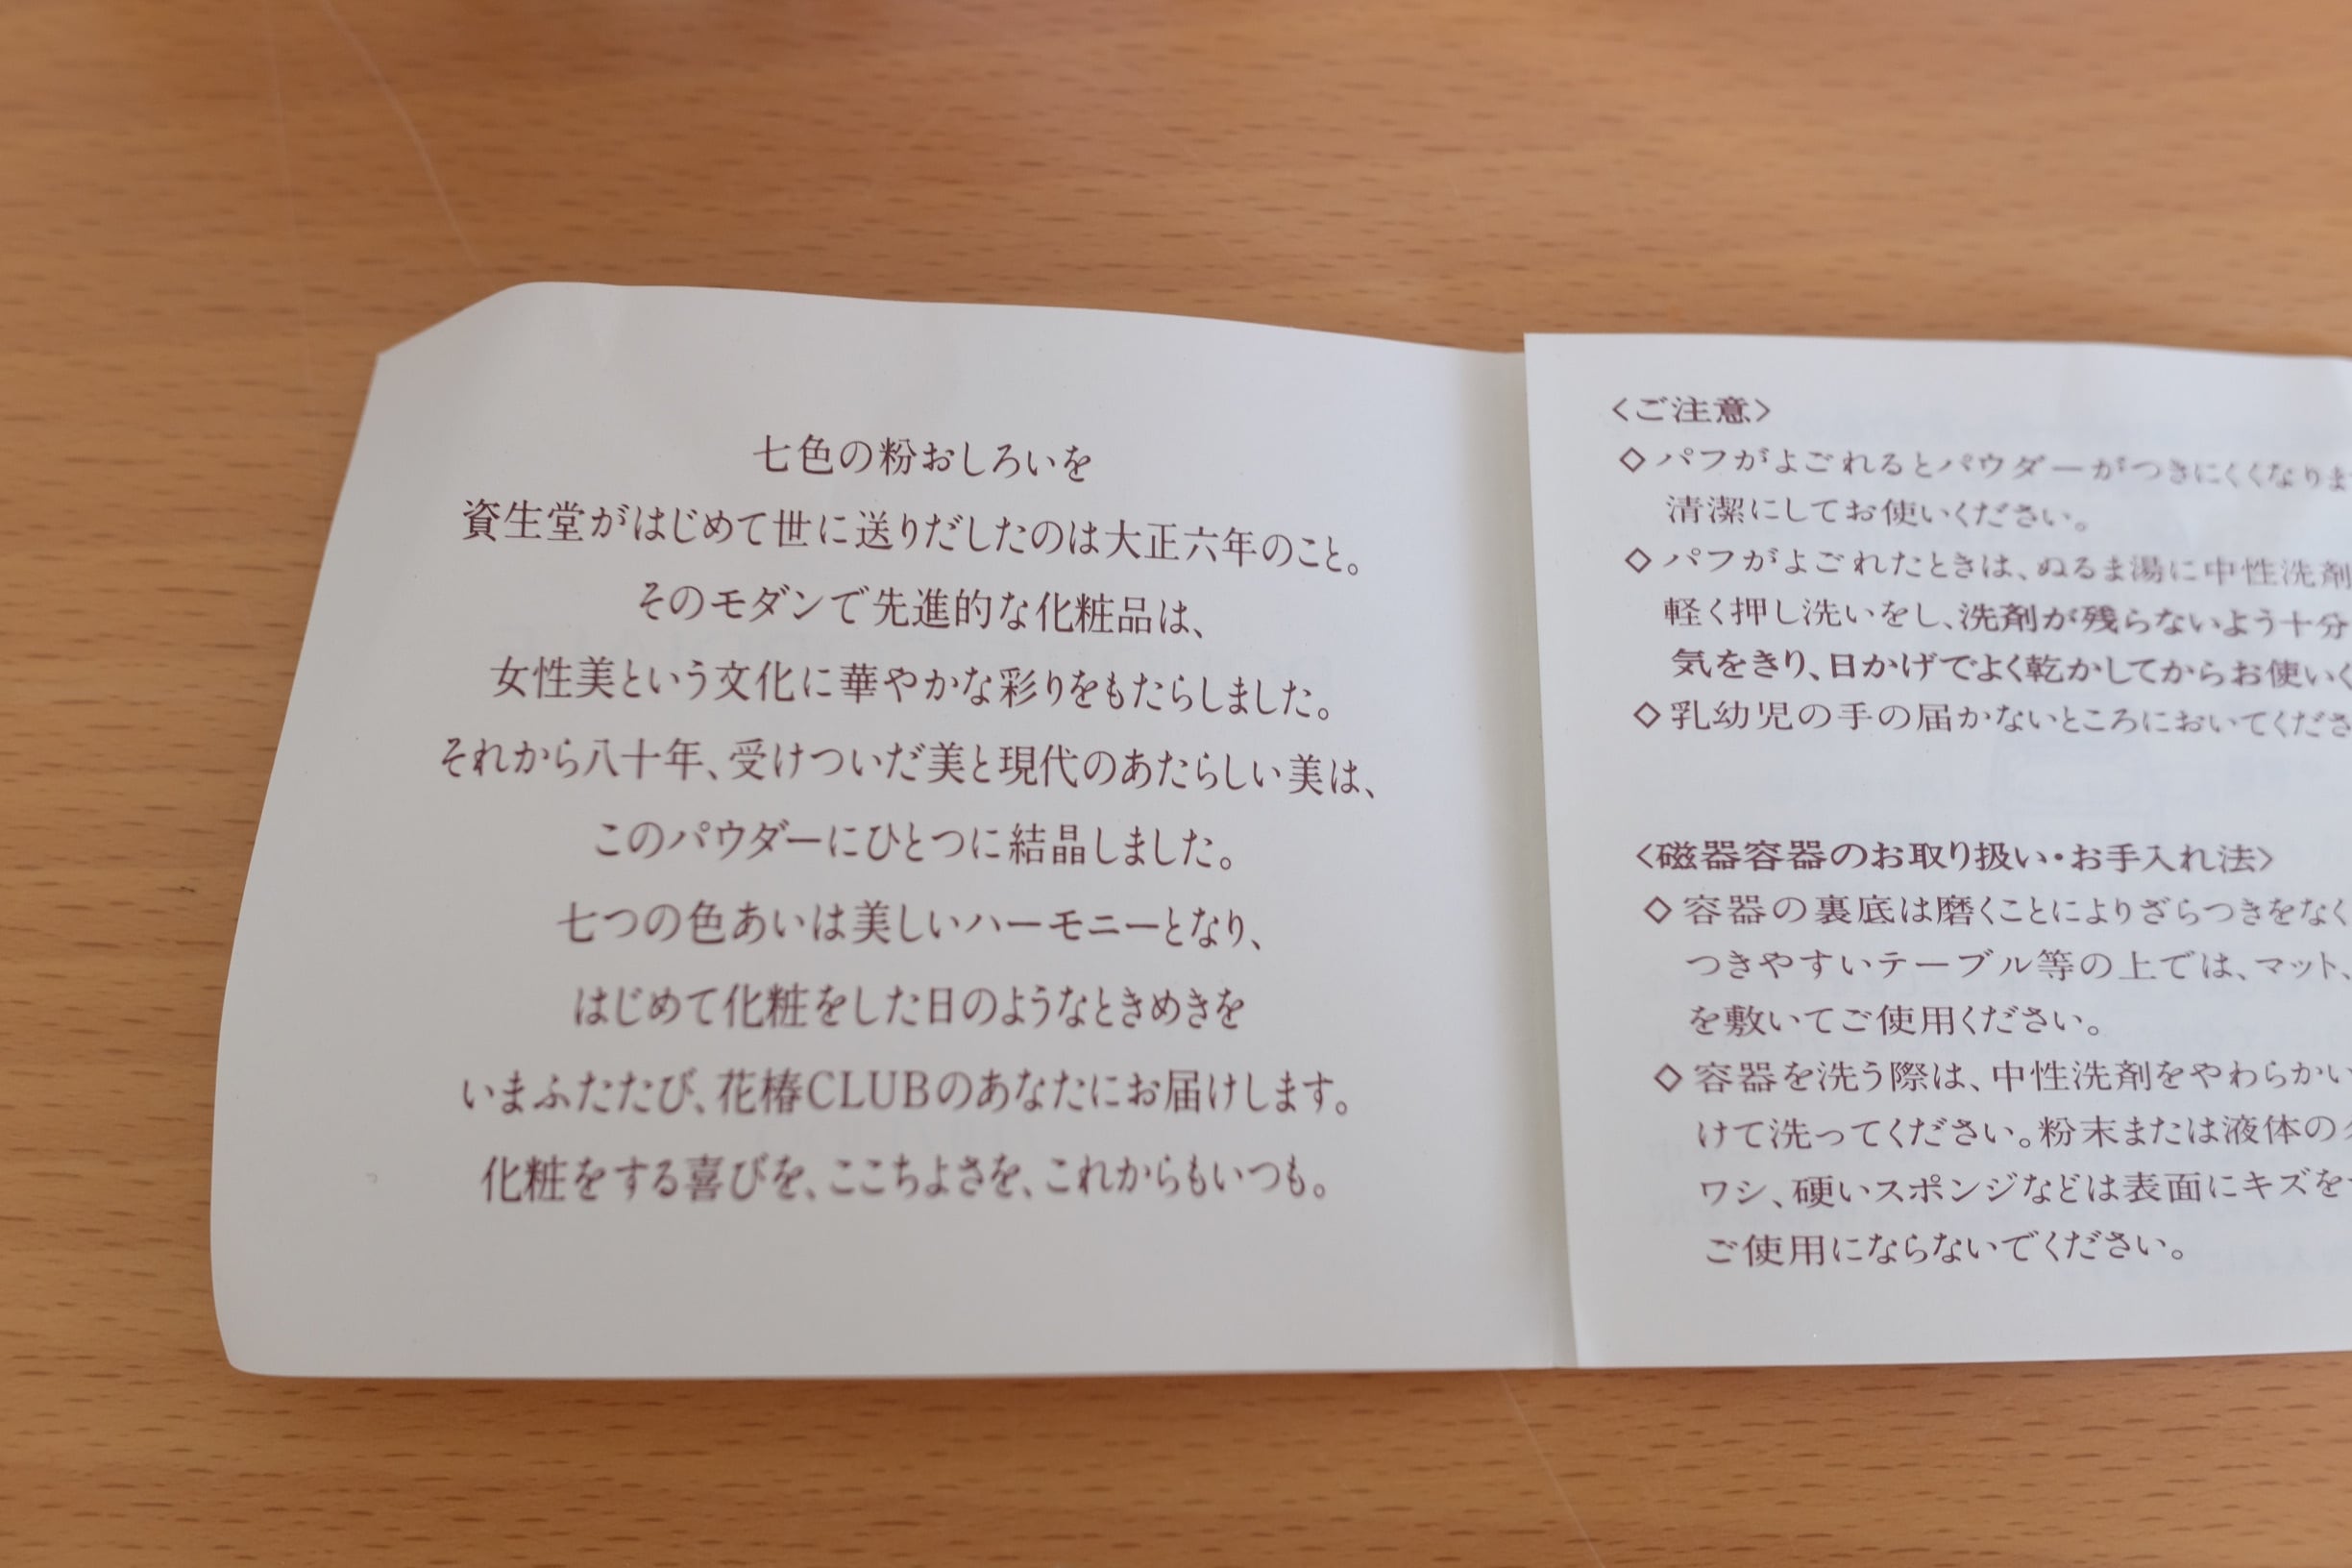 七色の粉おしろいを
資生堂がはじめて世に送りだしたのは大正六年のこと。
そのモダンで先進的な化粧品は、
女性美という文化に華やかな彩りをもたらしました。
それから八十年、受けついだ美と現代のあたらしい美は、
このパウダーにひとつに結晶しました。
七つの色あいは美しいハーモニーとなり、
はじめて化粧をした日のようなときめきを
いまふたたび、花椿CLUBのあなたにお届けします。
化粧をする喜びを、ここちよさを、これからもいつも。
〈ご注意〉
◇パフがよごれるとパウダーがつきにくくなりま
清潔にしてお使いください。
◇パフがよごれたときは、ぬるま湯に中性洗剤
軽く押し洗いをし、洗剤が残らないよう十分
気をきり、日かげでよく乾かしてからお使いく
◇乳幼児の手の届かないところにおいてくださ
〈磁器容器のお取り扱い・お手入れ法〉
◇容器の裏底は磨くことによりざらつきをなく
つきやすいテーブル等の上では、マット、
を敷いてご使用ください。
◇容器を洗う際は、中性洗剤をやわらかい
けて洗ってください。粉末または液体の
ワシ、硬いスポンジなどは表面にキズを
ご使用にならないでください。